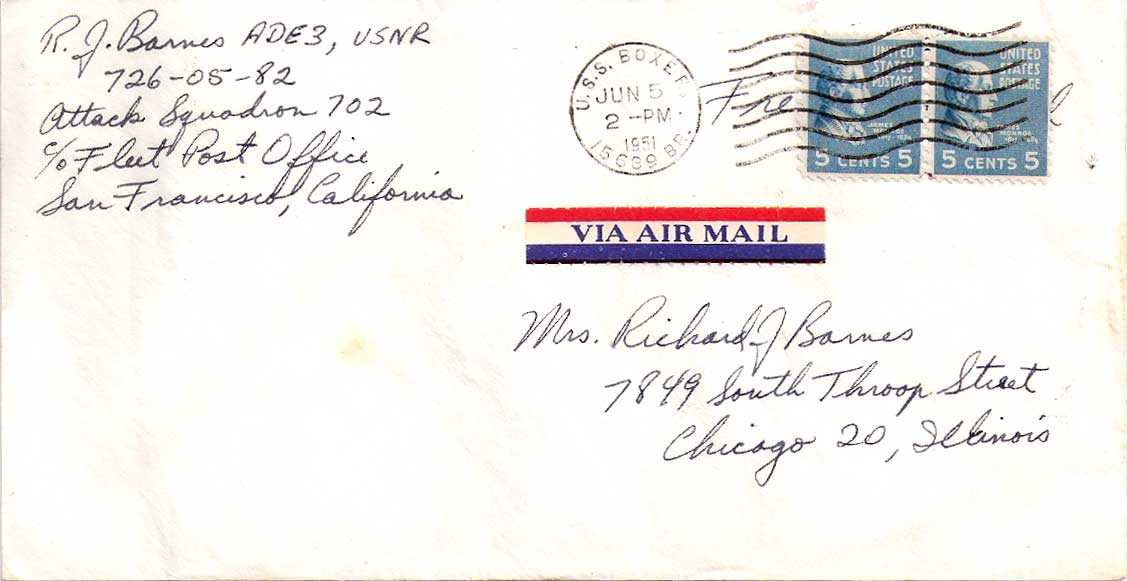 R. J. Barnes ADE3, USNR
726-05-82
Attack Squadron 702
c/o Fleet Post Office
San Francisco, California
U.S.S. BOXER
JUN 5
2 -PM
1951
15689 BR.
UNITED
STATES
POSTAGE
JAMES
MONROE
5 CENTS 5
UNITED
STATES
POSTAGE
JAMES
MONROE
5 CENTS 5
VIA AIR MAIL
Mrs. Richard J Barnes
7849 South Throop Street
Chicago 20, Illinois